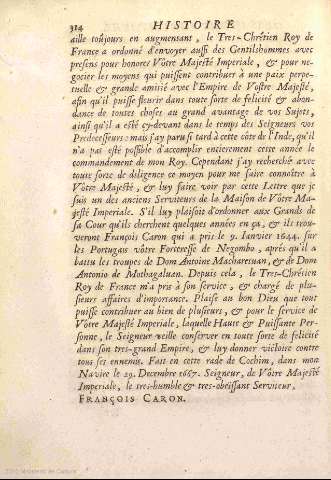 314 HISTOIRE
aille toûjours en augmentant, le Tres-Chrétien Roy de
France a ordonné d'envoyer aussi des Gentilshommes avec
presens pour honores Vôtre Majesté Imperiale, & pour ne-
gocier les moyens qui puissent contribuer à une paix perpe-
tuelle & grande amitié avec l'Empire de Vostre Majesté,
afin qu'il puisse fleurir dans toute sorte de felicité & abon-
dance de toutes choses au grand avantage de vos Sujets,
ainsi qu'il a esté cy-devant dans le temps des Seigneurs vos
Predecesseurs: mais j'ay paru si tard à cette côte de l'Inde, qu'il
n'a pas esté possible d'accomplir entierement cette année le
commandement de mon Roy. Cependant j'ay recherché avec
toute sorte de diligence ce moyen pour me faire connoître à
Vôtre Majesté, & luy faire voir par cette Lettre que je
suis un des anciens Serviteurs de la Maison de Vôtre Ma-
jesté Imperiale. S'il luy plaisoit d'ordonner aux Grands de
sa Cour qu'ils cherchent quelques années en çà, & ils trou-
veront François Caron qui a pris le 9. Janvier 1644. sur
les Portugais vôtre Forteresse de Negombo, après qu'il a
battu les troupes de Dom Antoine Macharesuan, & de Dom
Antonio de Mothagaluan. Depuis cela, le Tres-Chrétien
Roy de France m'a pris à son service, & chargé de plu-
sieurs affaires d'importance. Plaise au bon Dieu que tout
puisse contribuer au bien de plusieurs, & pour le service de
Vôtre Majesté Imperiale, laquelle Haute & Puissante Per-
sonne, le Seigneur veille conserver en toute sorte de felicité
dans son tres-grand Empire, & luy donner victoire contre
tous ses ennemis. Fait en cette rade de Cochim, dans mon
Navire le 29. Decembre 1667. Seigneur, de Vôtre Majesté
Imperiale, le tres-humble & tres-obeissant Serviteur,
FRANÇOIS CARON.